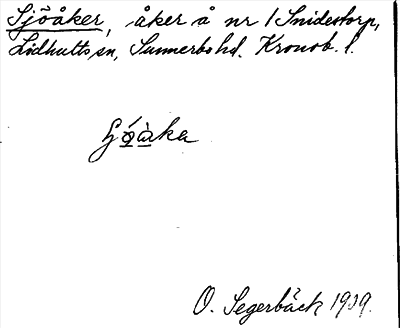 Sjöåker, åker å nr 1 Snidestorp,
Lidhults sn, Sunnerbo hd. Kronob. l.
O. Segerbäck 1909.